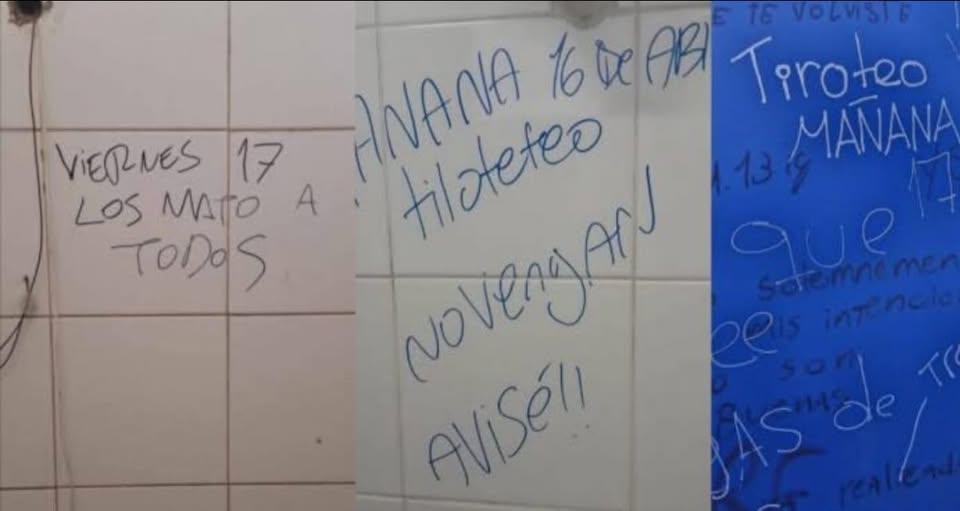 VIERNES 17
LOS MATO A
TODOS
ANANA 16 De ABI
tiloteteo
NO VengAn
AVISÉ!!
E TE VOLVISTE
Tiroteo
MAÑANA
17
1.13
que
solemnemen
mis intencio
ee
son
AS de
realizad